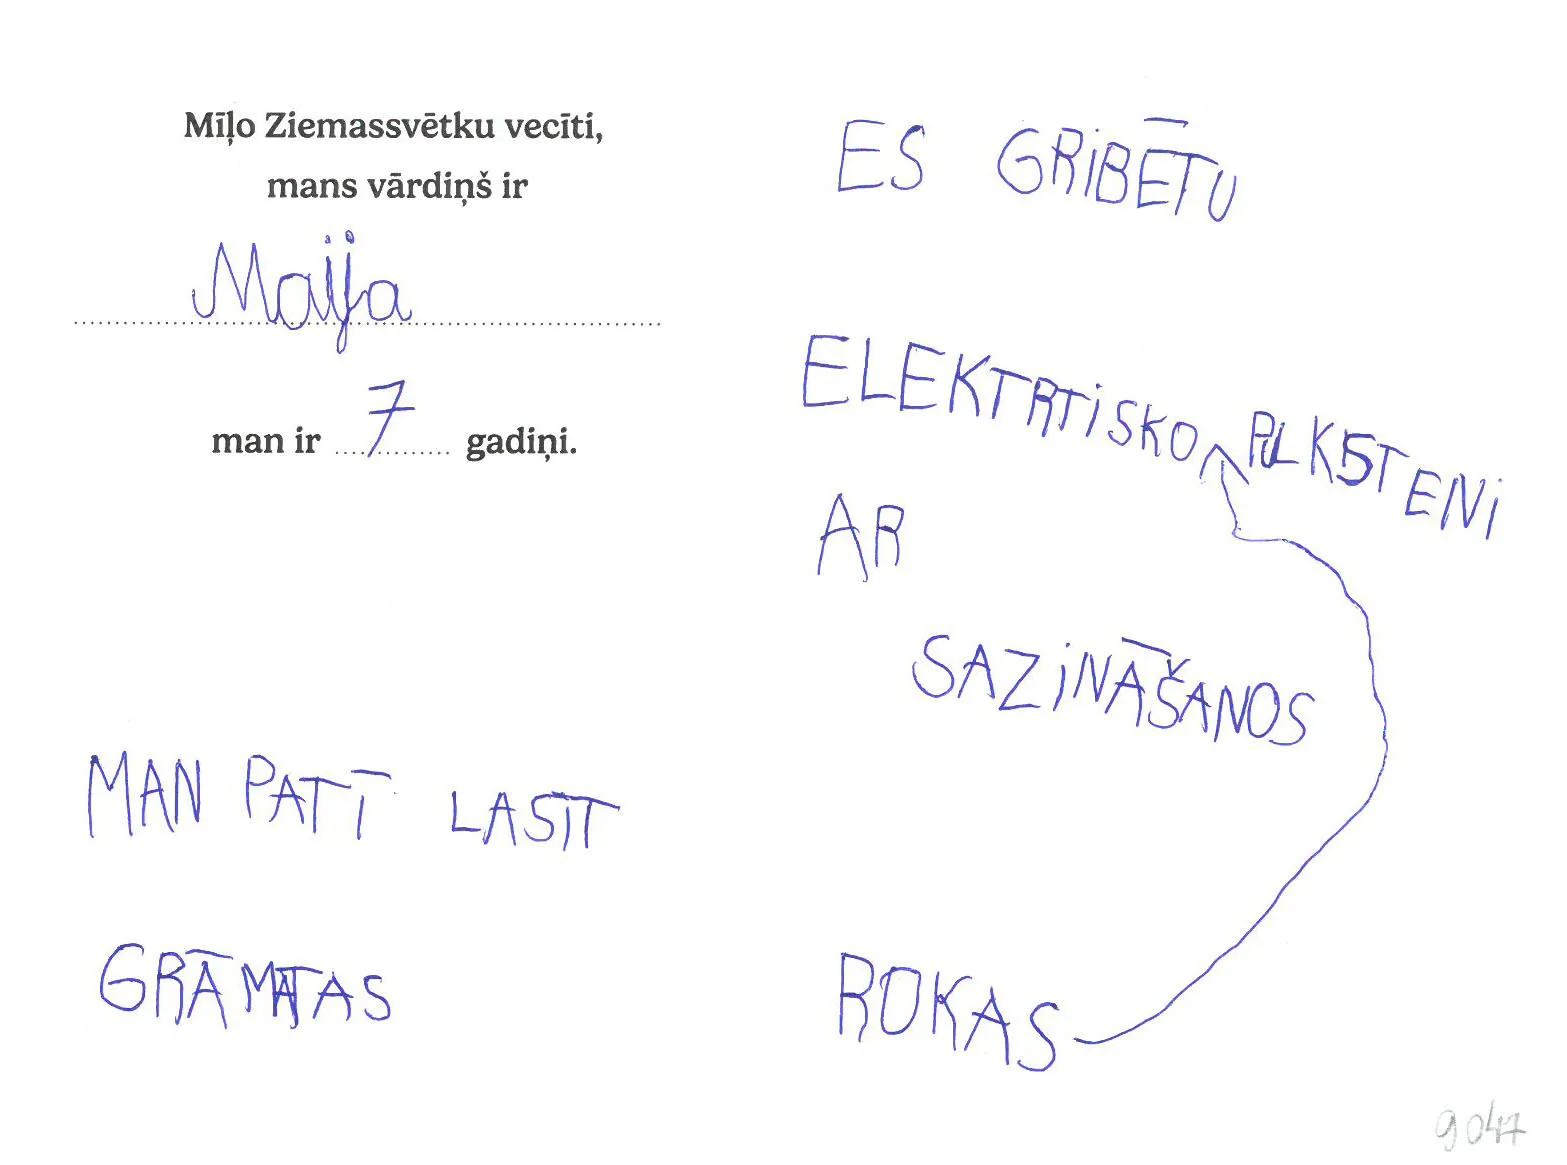 Mīļo Ziemassvētku vecīti,
mans vārdiņš ir
Maija
man ir 7 gadiņi.
MAN PATĪ LASĪT
GRĀMATAS
ES GRIBĒTU
ELEKTRTISKO PULKSTENI
AR
SAZINĀŠANOS
ROKAS
9047